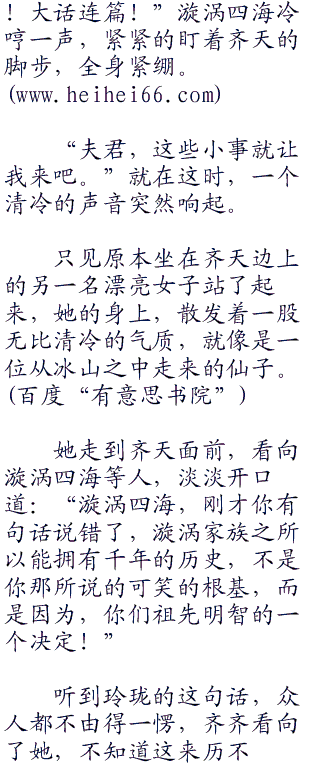 ！大话连篇！”漩涡四海冷
哼一声，紧紧的盯着齐天的
脚步，全身紧绷。
(www.heihei66.com)
“夫君，这些小事就让
我来吧。”就在这时，一个
清冷的声音突然响起。
只见原本坐在齐天边上
的另一名漂亮女子站了起
来，她的身上，散发着一股
无比清冷的气质，就像是一
位从冰山之中走来的仙子。
(百度“有意思书院”)
她走到齐天面前，看向
漩涡四海等人，淡淡开口
道：“漩涡四海，刚才你有
句话说错了，漩涡家族之所
以能拥有千年的历史，不是
你那所说的可笑的根基，而
是因为，你们祖先明智的一
个决定！”
听到玲珑的这句话，众
人都不由得一愣，齐齐看向
了她，不知道这来历不